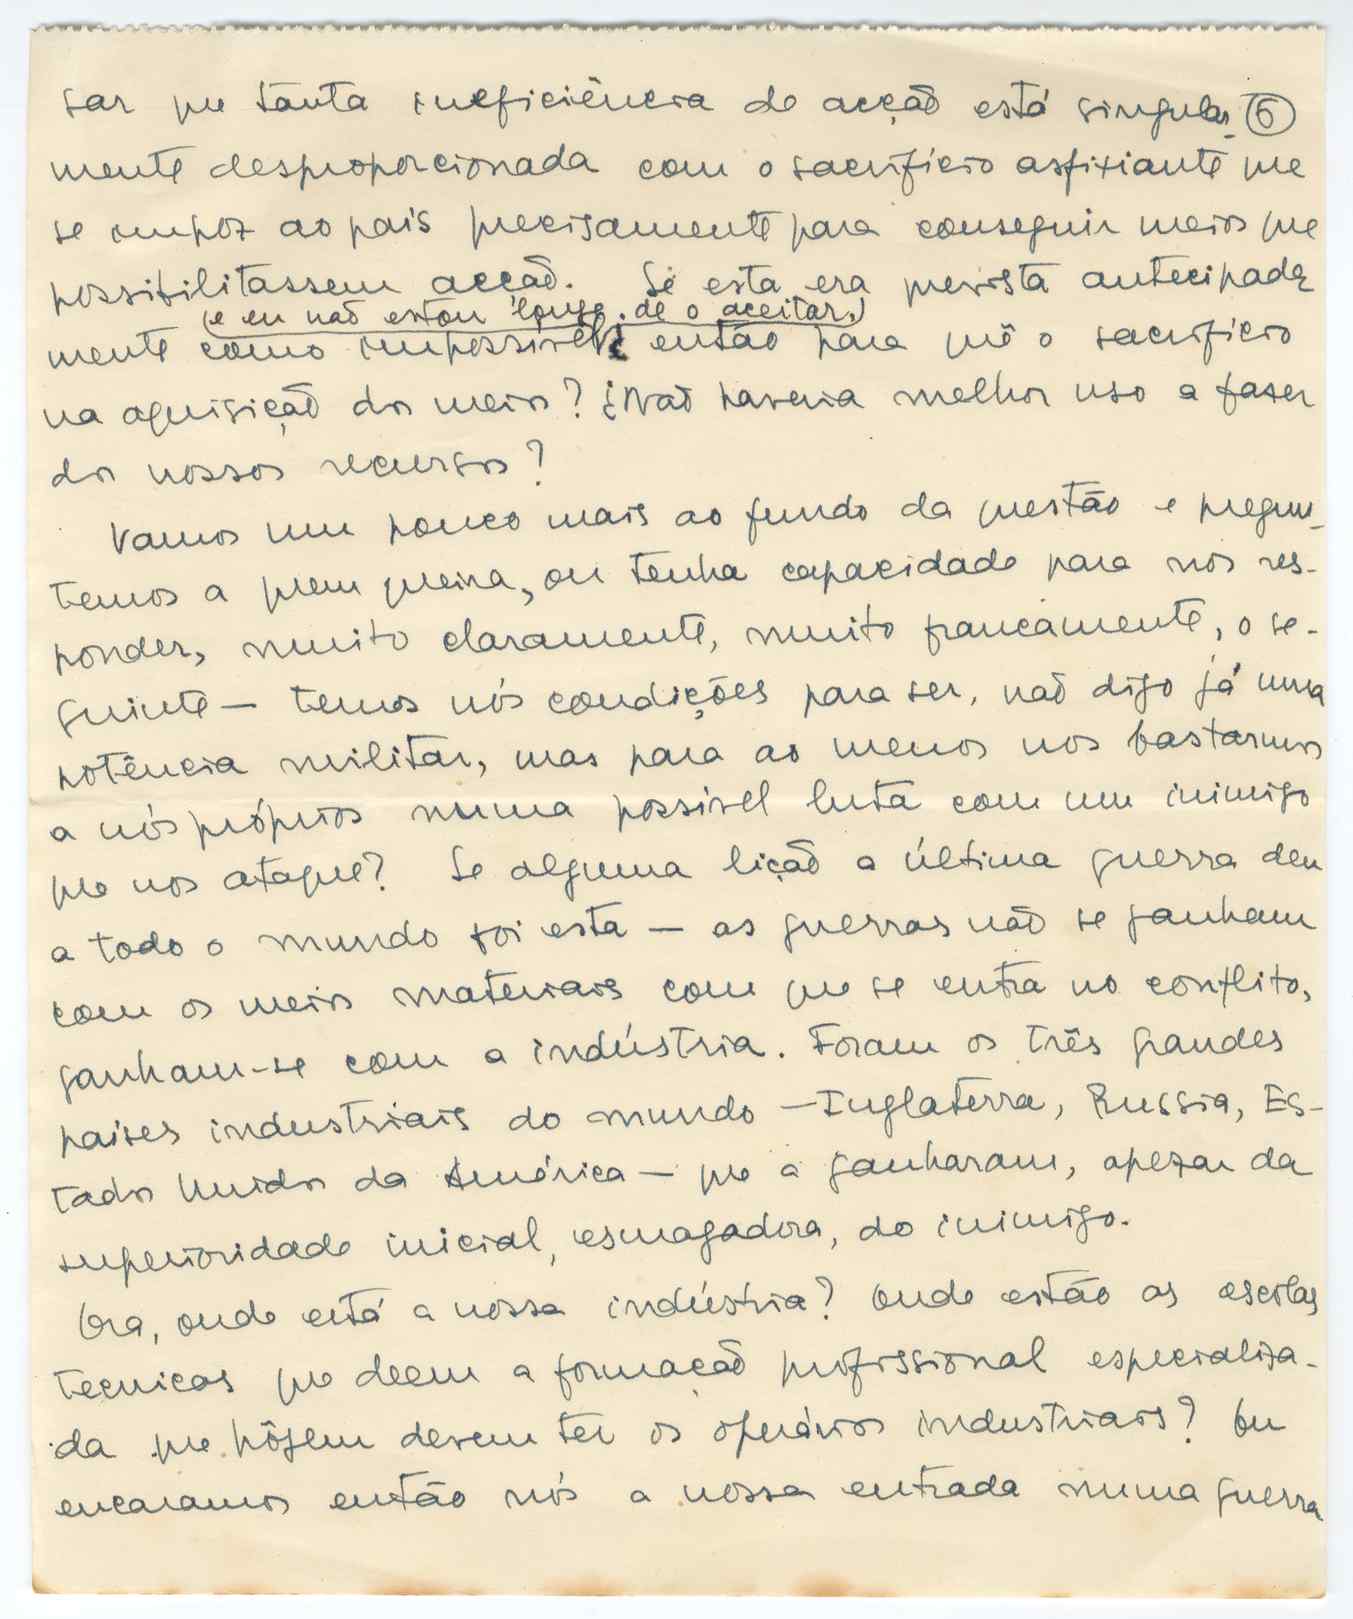 sar que tanta ineficiência de acção está singular- 6
mente desproporcionada com o sacrifício asfixiante que
se impoz ao país precisamente para conseguir meios que
possibilitassem acção. Se esta era prevista antecipada
(e eu não estou longe de o aceitar,)
mente como impossível, então para quê o sacrifício
na aquisição dos meios? ¿Não haveria melhor uso a fazer
dos nossos recursos?
Vamos um pouco mais ao fundo da questão e pregun-
temos a quem queira, ou tenha capacidade para nos res-
ponder, muito claramente, muito francamente, o se-
guinte — temos nós condições para ser, não digo já uma
potência militar, mas para ao menos nos bastarmos
a nós próprios numa possível luta com um inimigo
que nos ataque? Se alguma lição a última guerra deu
a todo o mundo foi esta — as guerras não se ganham
com os meios materiais com que se entra no conflito,
ganham-se com a indústria. Foram os três grandes
países industriais do mundo — Inglaterra, Russia, Es-
tados Unidos da América — que a ganharam, apezar da
superioridade inicial, esmagadora, do inimigo.
Ora, onde está a nossa indústria? Onde estão as escolas
tecnicas que deem a formação profissional especializa-
da que hôjem devem ter os operários industriais? Ou
encaramos então nós a nossa entrada numa guerra